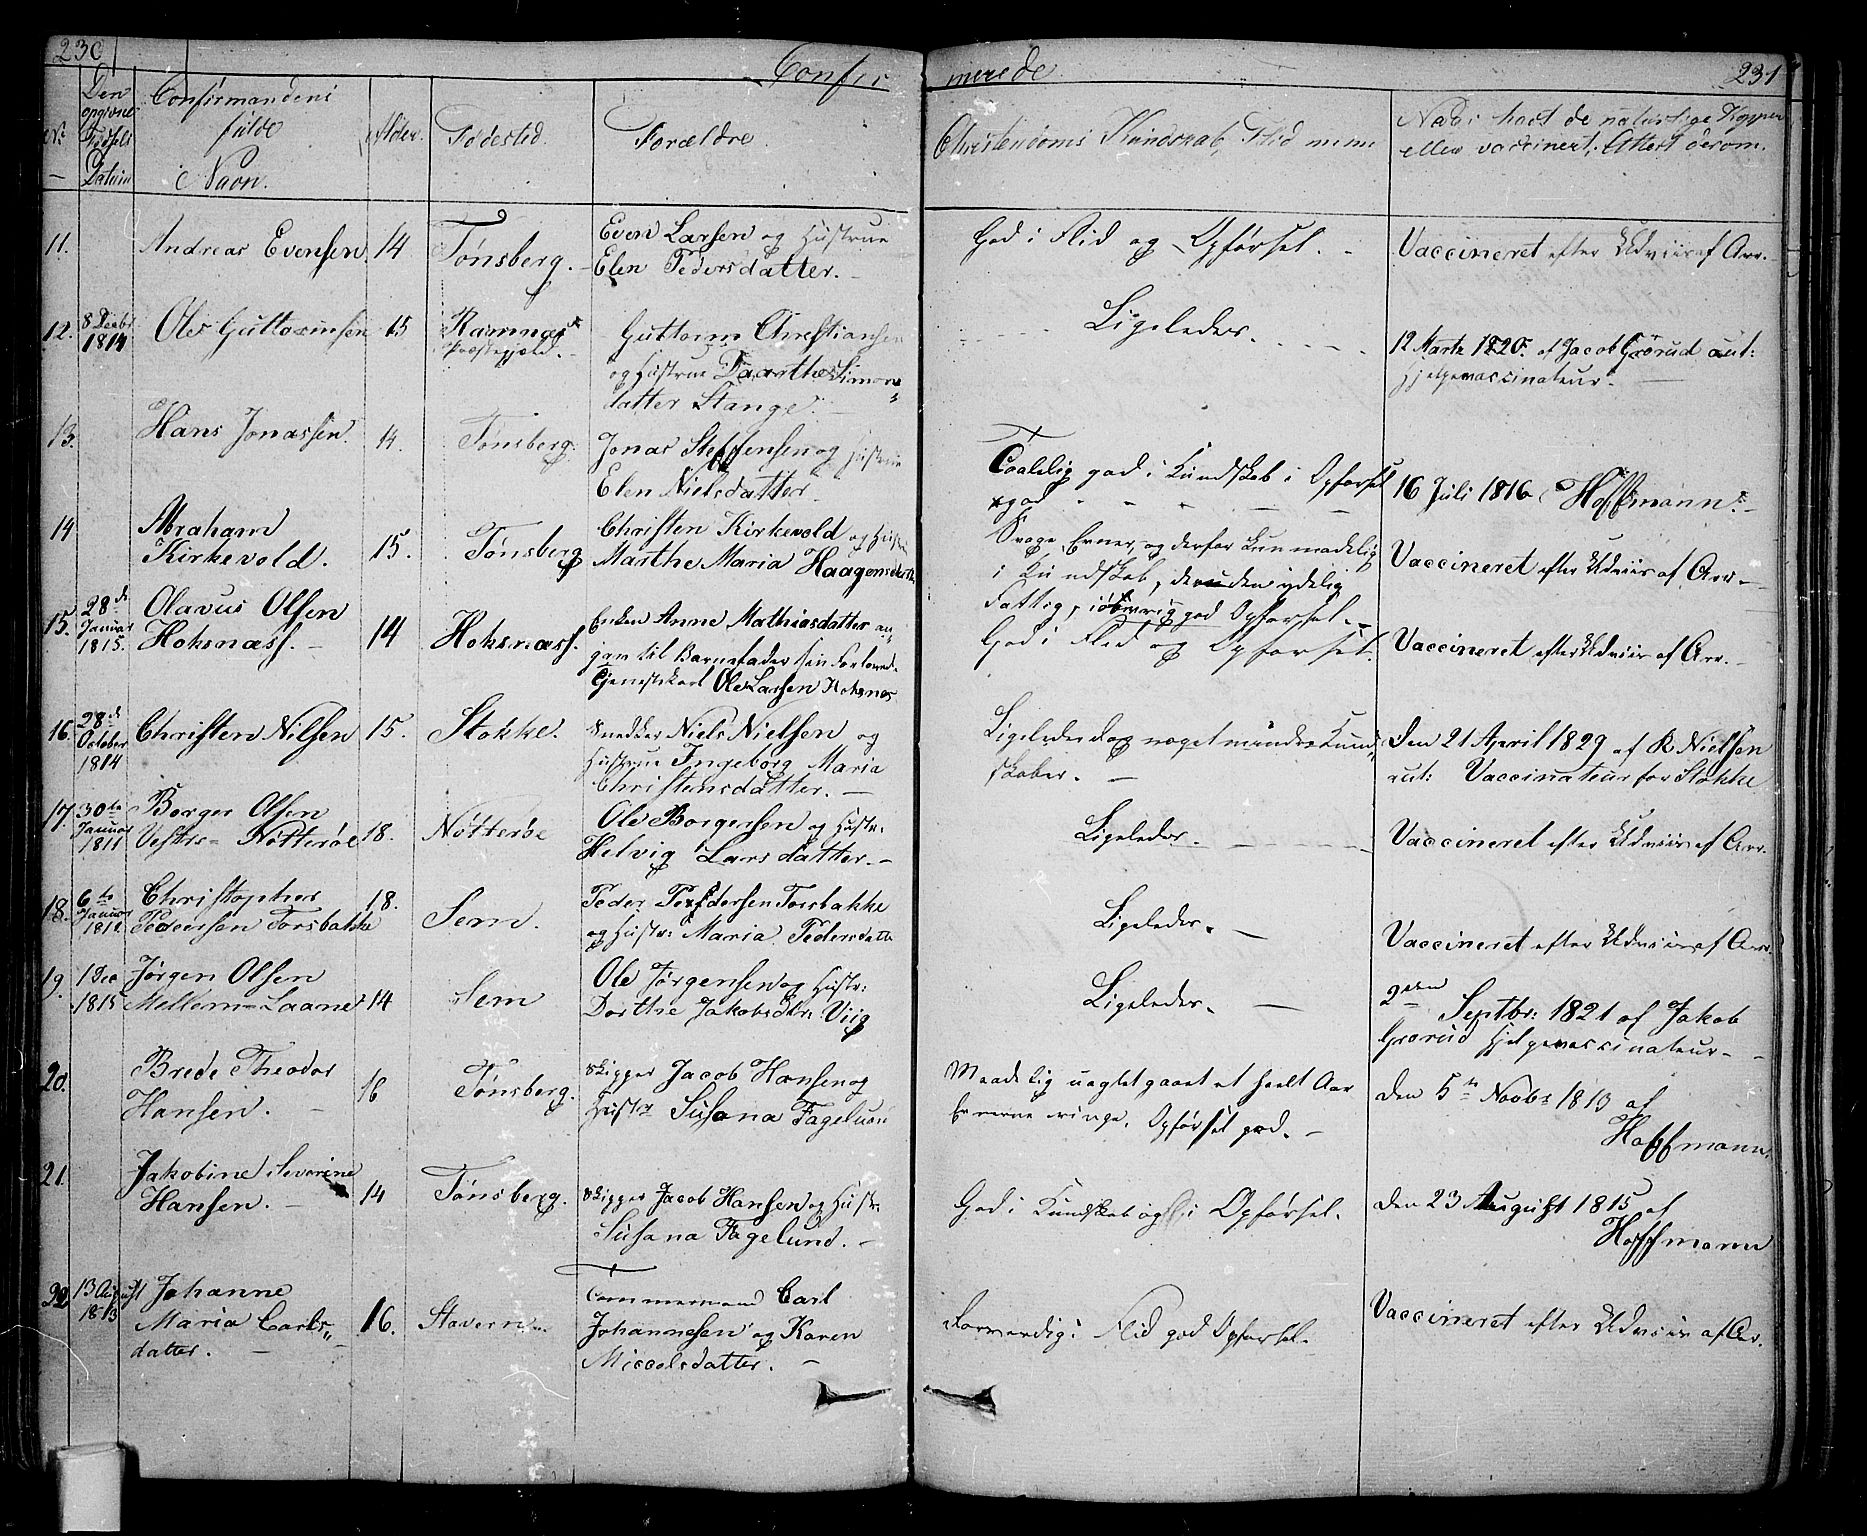 230
Confir
merede
231
No
Den opgivne Fødsels Datum
Confirmandens fulde Navn.
Alder.
Fødested.
Forældre.
Christendoms Kundskab, Flid
Naar havt de naturlige Kopper
eller vaccineret, Attest derom.
11.
Andreas Evensen
14
Tønsberg.
Even Larsen og Hustrue
Elen Pedersdatter.
God i Flid og Opførsel.
Vaccineret efter Udviis af Arr.
12.
8 Decbr
1814
Ole Guttormsen
15
Ramnæs
Præstegjeld.
Guttorm Christiansen
og Hustrue Daarthe Simons
datter Stange.
Ligeledes.
12 Marts 1820. af Jacob Grorud aut:
Hjelpevaccinateur.
13.
Hans Jonassen.
14.
Tønsberg.
Jonas Steffensen og Hustrue
Elen Nielsdatter.
Taalelig god i Kundskab i Opførsel
god
16 Juli 1816 Hoffmann.
14
Abraham
Kirkevold.
15.
Tønsberg
Christen Kirkevold og Hustr
Marthe Maria Haagensdatter
Svage Evner, og derfor kun maadelig
i Kundskab, desuden ydelig
Fattig, iøvrig god Opførsel.
Vaccineret efter Udviis af Arr.
15.
28de
Januar
1815.
Olavus Olsen
Hoksnæss.
14
Hoksnæss.
Enken Anne Mathiasdatter an
gav til Barnefader sin Forlovede
Tjenestekarl Ole Larsen Hoksnæs
God i Flid og Opførsel.
Vaccineret efter Udviis af Arr.
16.
28de
October
1814
Christen Nilsen
15.
Stokke.
Snedker Niels Nielsen og
Hustrue Ingeborg Maria
Christensdatter.
Ligeledes dog noget mindre Kund
skaber.
Den 21 April 1829 af R Nielsen
aut: Vaccinateur for Stokke
17.
30te
Januar
1811
Borger Olsen
Vestre- Nøtterøe
18.
Nøtterøe
Ole Borgersen og Hustr:
Helvig Larsdatter.
Ligeledes.
Vaccineret efter Udviis af Arr.
18.
6te
Januar
1812
Christopher
Pedersen Torsbakke
18.
Sem.
Peder Pedersen Torsbakke
og Hustr: Maria Pedersdatte
Ligeledes.
Vaccineret efter Udviis af Arr.
19.
1 Dec
1815
Jørgen Olsen
Mellem-Laane
14
Sem
Ole Jørgensen og Hustr:
Dorthe Jakobsdtr: Viig
Ligeledes.
2den
Septbr: 1821 af Jakob
Grorud Hjelpevaccinateur.
20.
Brede Theodor
Hansen.
16
Tønsberg.
Skipper Jacob Hansen og
Hustr Susana Fagelund
Maadelig uagtet gaaet et heelt Aar
Evnerne ringe. Opførsel god.
Den 5te Novbr 1813 af
Hoffmann.
21.
Jakobine Severine
Hansen.
14
Tønsberg.
Skipper Jacob Hansen og Hustr:
Susana Fagelund.
God i Kundskab og i Opførsel.
Den 23 August 1815 af
Hoffmann
22
13 August
1813
Johanne
Maria Carls
datter.
16.
Stavern
Tømmermand Carl
Johannesen og Karen
Miccelsdatter.
Forsvarlig i Flid god Opførsel.
Vaccineret efter Udviis af Ar.